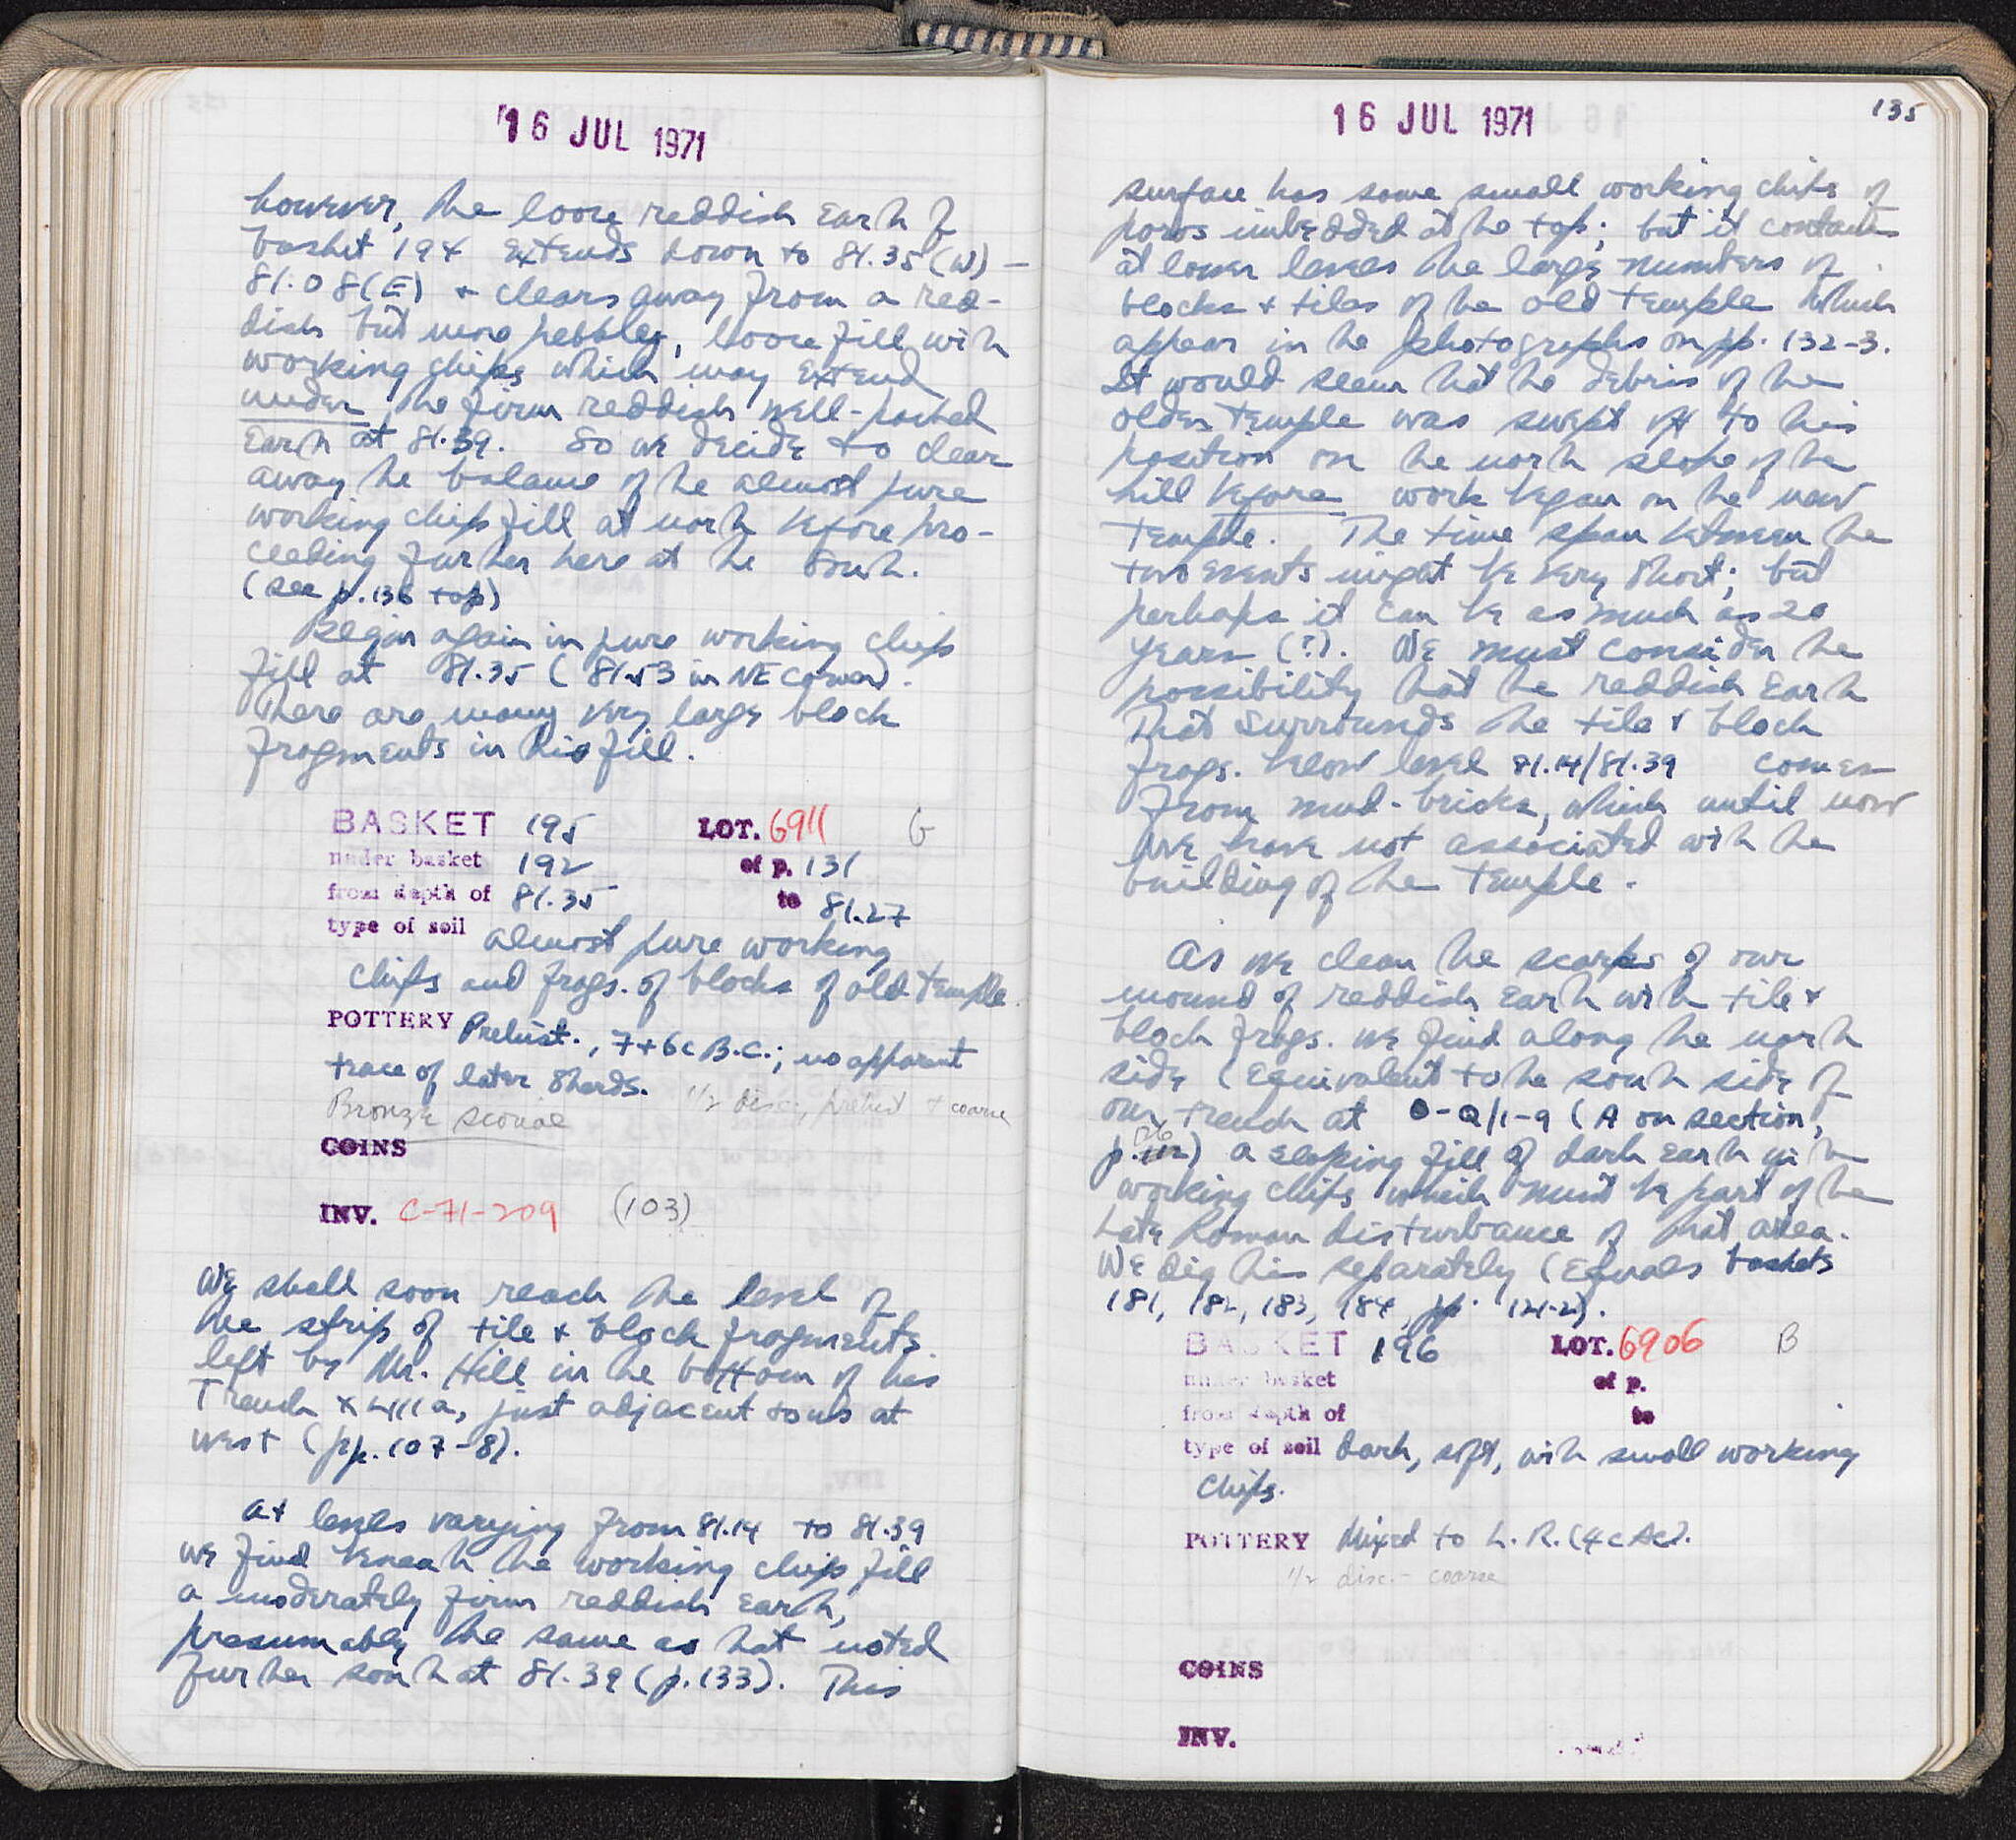 16 JUL 1971
however, the loose reddish earth of
basket 194 extends down to 81.35 (W) –
81.08 (E) + clears away from a red-
dish but more pebbly, loose fill with
working chips which may extend
under the firm reddish well-packed
earth at 81.39. So we decide to clear
away the balance of the almost pure
working chip fill at north before pro-
ceeding further here at the south.
(see p. 136 top)
Begin again in pure working chip
fill at 81.35 (81.53 in NE corner).
There are many very large block
fragments in this fill.
BASKET 195 LOT. 6911 G
under basket 192 of p. 131
from depth of 81.35 to 81.27
type of soil almost pure working
chips and frags. of blocks of old temple.
POTTERY Prehist., 7+6c B.C.; no apparent
trace of later sherds.
Bronze 1/2 disc. prehist + coarse
COINS
INV. C-71-209 (103)
We shall soon reach the level of
the strip of tile + block fragments
left by Mr. Hill in the bottom of his
Trench just adjacent to us at
west (pp. 107-8).
At levels varying from 81.14 to 81.39
we find beneath the working chip fill
a moderately firm reddish earth,
presumably the same as that noted
further south at 81.39 (p. 133). This
16 JUL 1971
135
surface has some small working chips of
poros imbedded at the top; but it contains
at lower levels the large numbers of
blocks + tiles of the old temple which
appear in the photographs on pp. 132-3.
It would seem that the debris of the
older temple was swept off to this
position on the north slope of the
hill before work began on the new
temple. The time span between the
two events might be very short; but
perhaps it can be as much as 20
years (?). We must consider the
possibility that the reddish earth
that surrounds the tile + block
frags. below level 81.14/81.39 comes
from mud-bricks, which until now
we have not associated with the
building of the temple.
As we clean the scarps of our
mound of reddish earth with tile +
block frags. we find along the north
side (equivalent to the south side of
our trench at O-Q/1-9 (A on section,
p. 126) a sloping fill of dark earth with
working chips which must be part of the
Late Roman disturbance of that area.
We dig this separately (equals baskets
181, 182, 183, 184, pp. 121-2).
BASKET 196 LOT. 6906 B
under basket of p.
from depth of to
type of soil dark, soft, with small working
chips.
POTTERY Mixed to L. R. (4c AC).
1/2 disc. - coarse
COINS
INV.